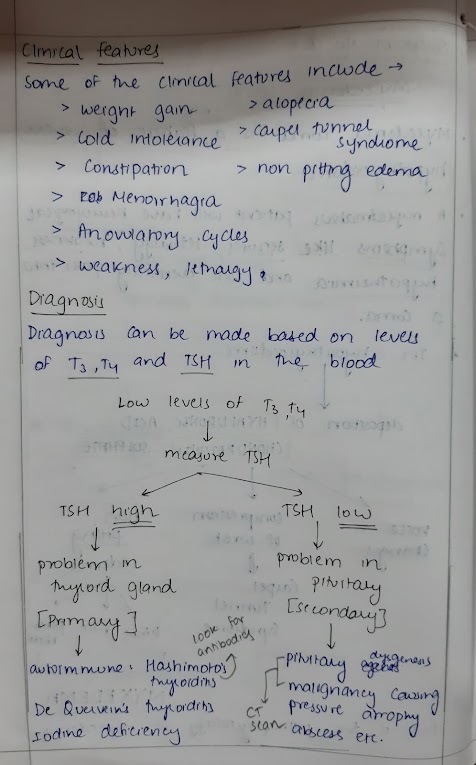 Clinical features
Some of the clinical features include →
> weight gain
> alopecia
> Cold intolerance
> carpel tunnel syndrome
> Constipation
> non pitting edema
> Menorrhagia
> Anovulatory cycles
> weakness, lethargy.
Diagnosis
Diagnosis can be made based on levels
of T3, T4 and TSH in the blood
Low levels of T3, T4
↓
measure TSH
TSH high
TSH low
↓
↓
problem in
thyroid gland
[Primary]
problem in
pituitary
[secondary]
↓
↓
look for
antibodies
autoimmune: Hashimoto's
thyroiditis
De Quervein's thyroiditis
Iodine deficiency
pituitary dysgenesis
malignancy causing
pressure atrophy
abscess etc.
CT
scan